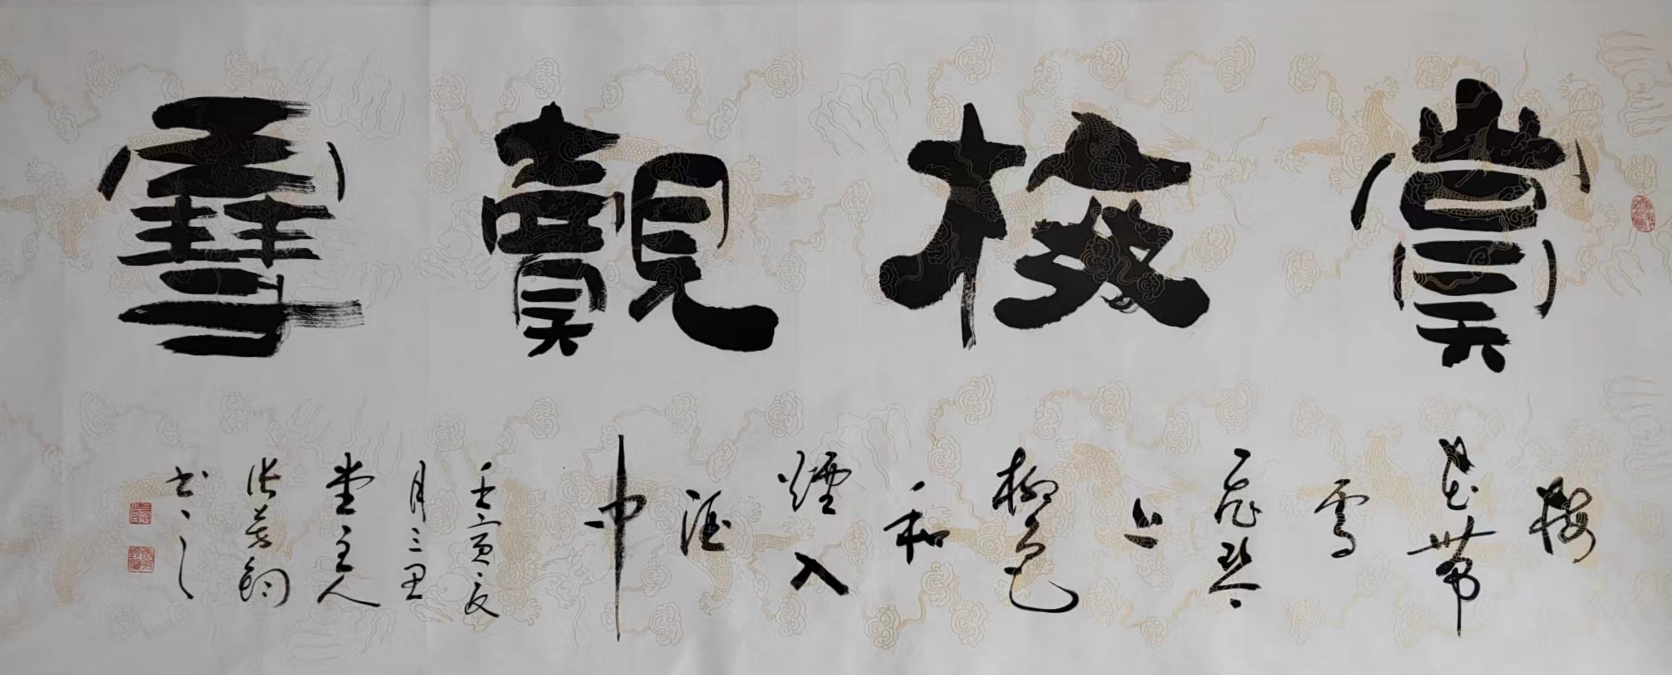 賞梅覿雪
梅
花帶
雪
飛琴
上
柳色
和
煙入
酒
中
壬寅夏
月三思
堂主人
張芳鈞
書之